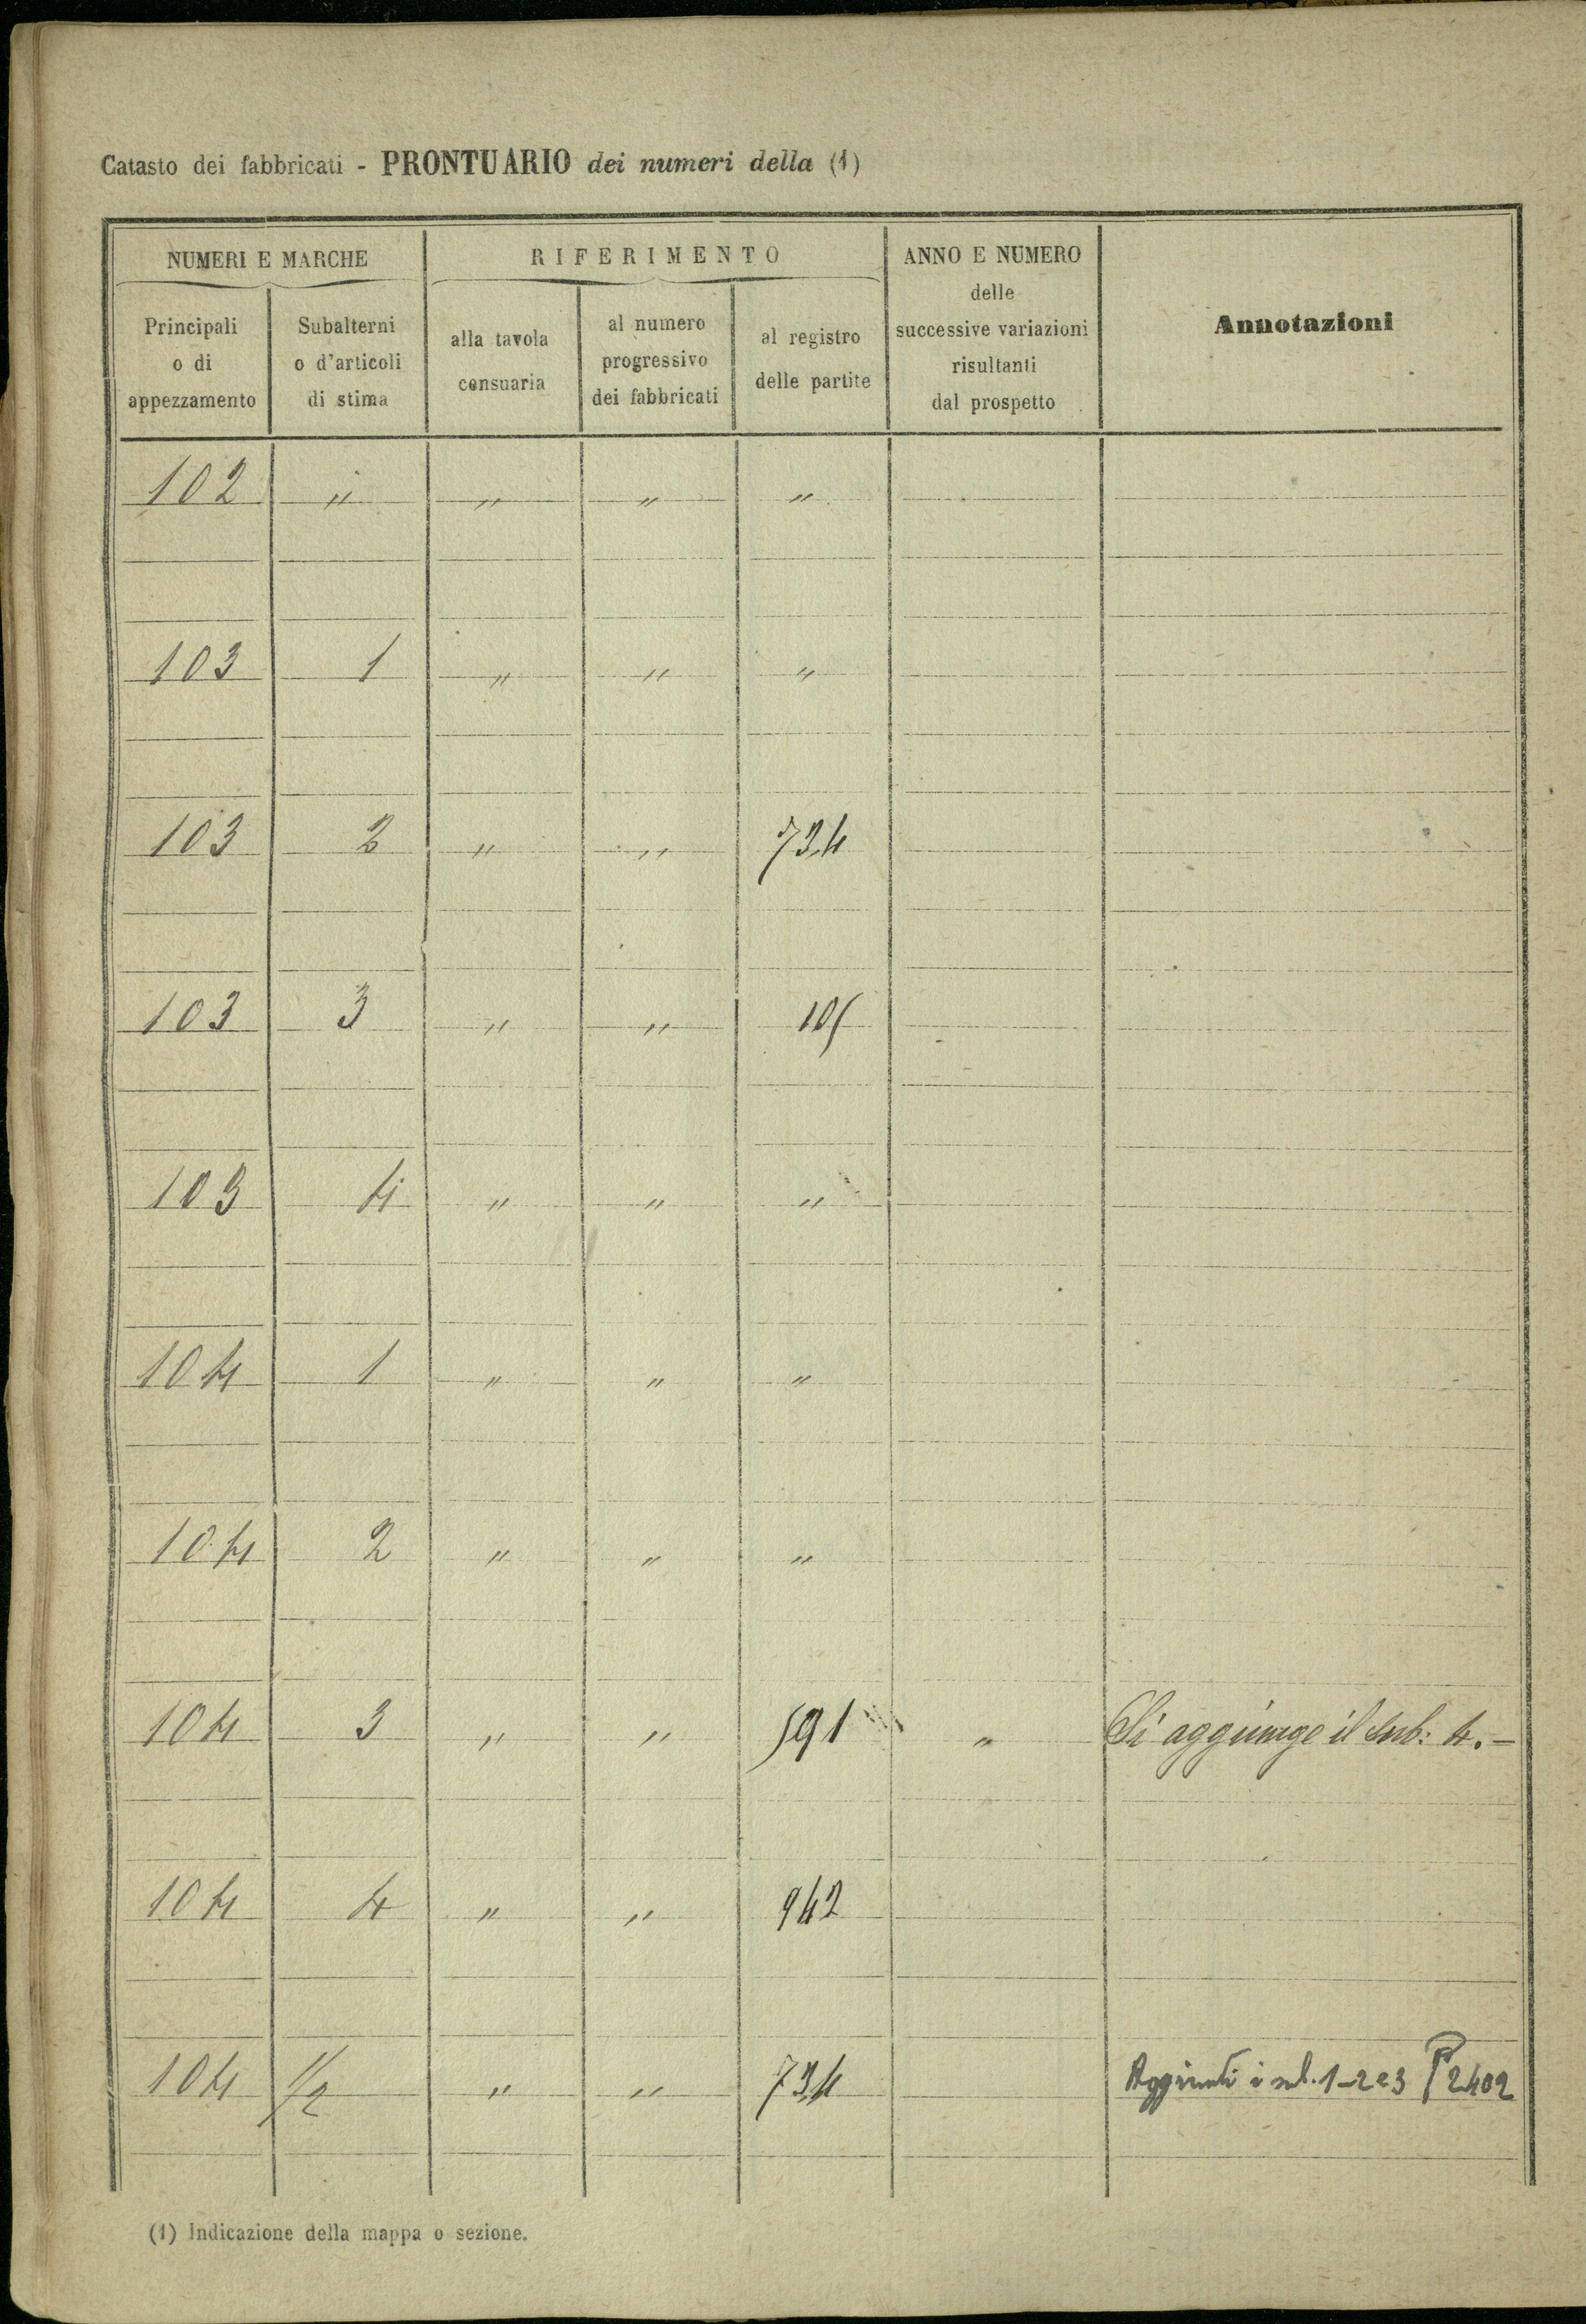 Catasto dei fabbricati - PRONTUARIO dei numeri della (1)
NUMERI E MARCHE
RIFERIMENTO
ANNO E NUMERO
delle
successive variazioni
risultanti
dal prospetto
Annotazioni
Principali
o di
appezzamento
Subalterni
o d'articoli
di stima
alla tavola
censuaria
al numero
progressivo
dei fabbricati
al registro
delle partite
102 " " " "
103 1 " " "
103 2 " " 734
103 3 " " 105
103 4 " " "
104 1 " " "
104 2 " " "
104 3 " " 591 " Si aggiunge il sub: 4.-
104 4 " " 942
104 1/2 " " 734 Aggiunti i sub. 1-2 e 3 P 2402
(1) Indicazione della mappa o sezione.